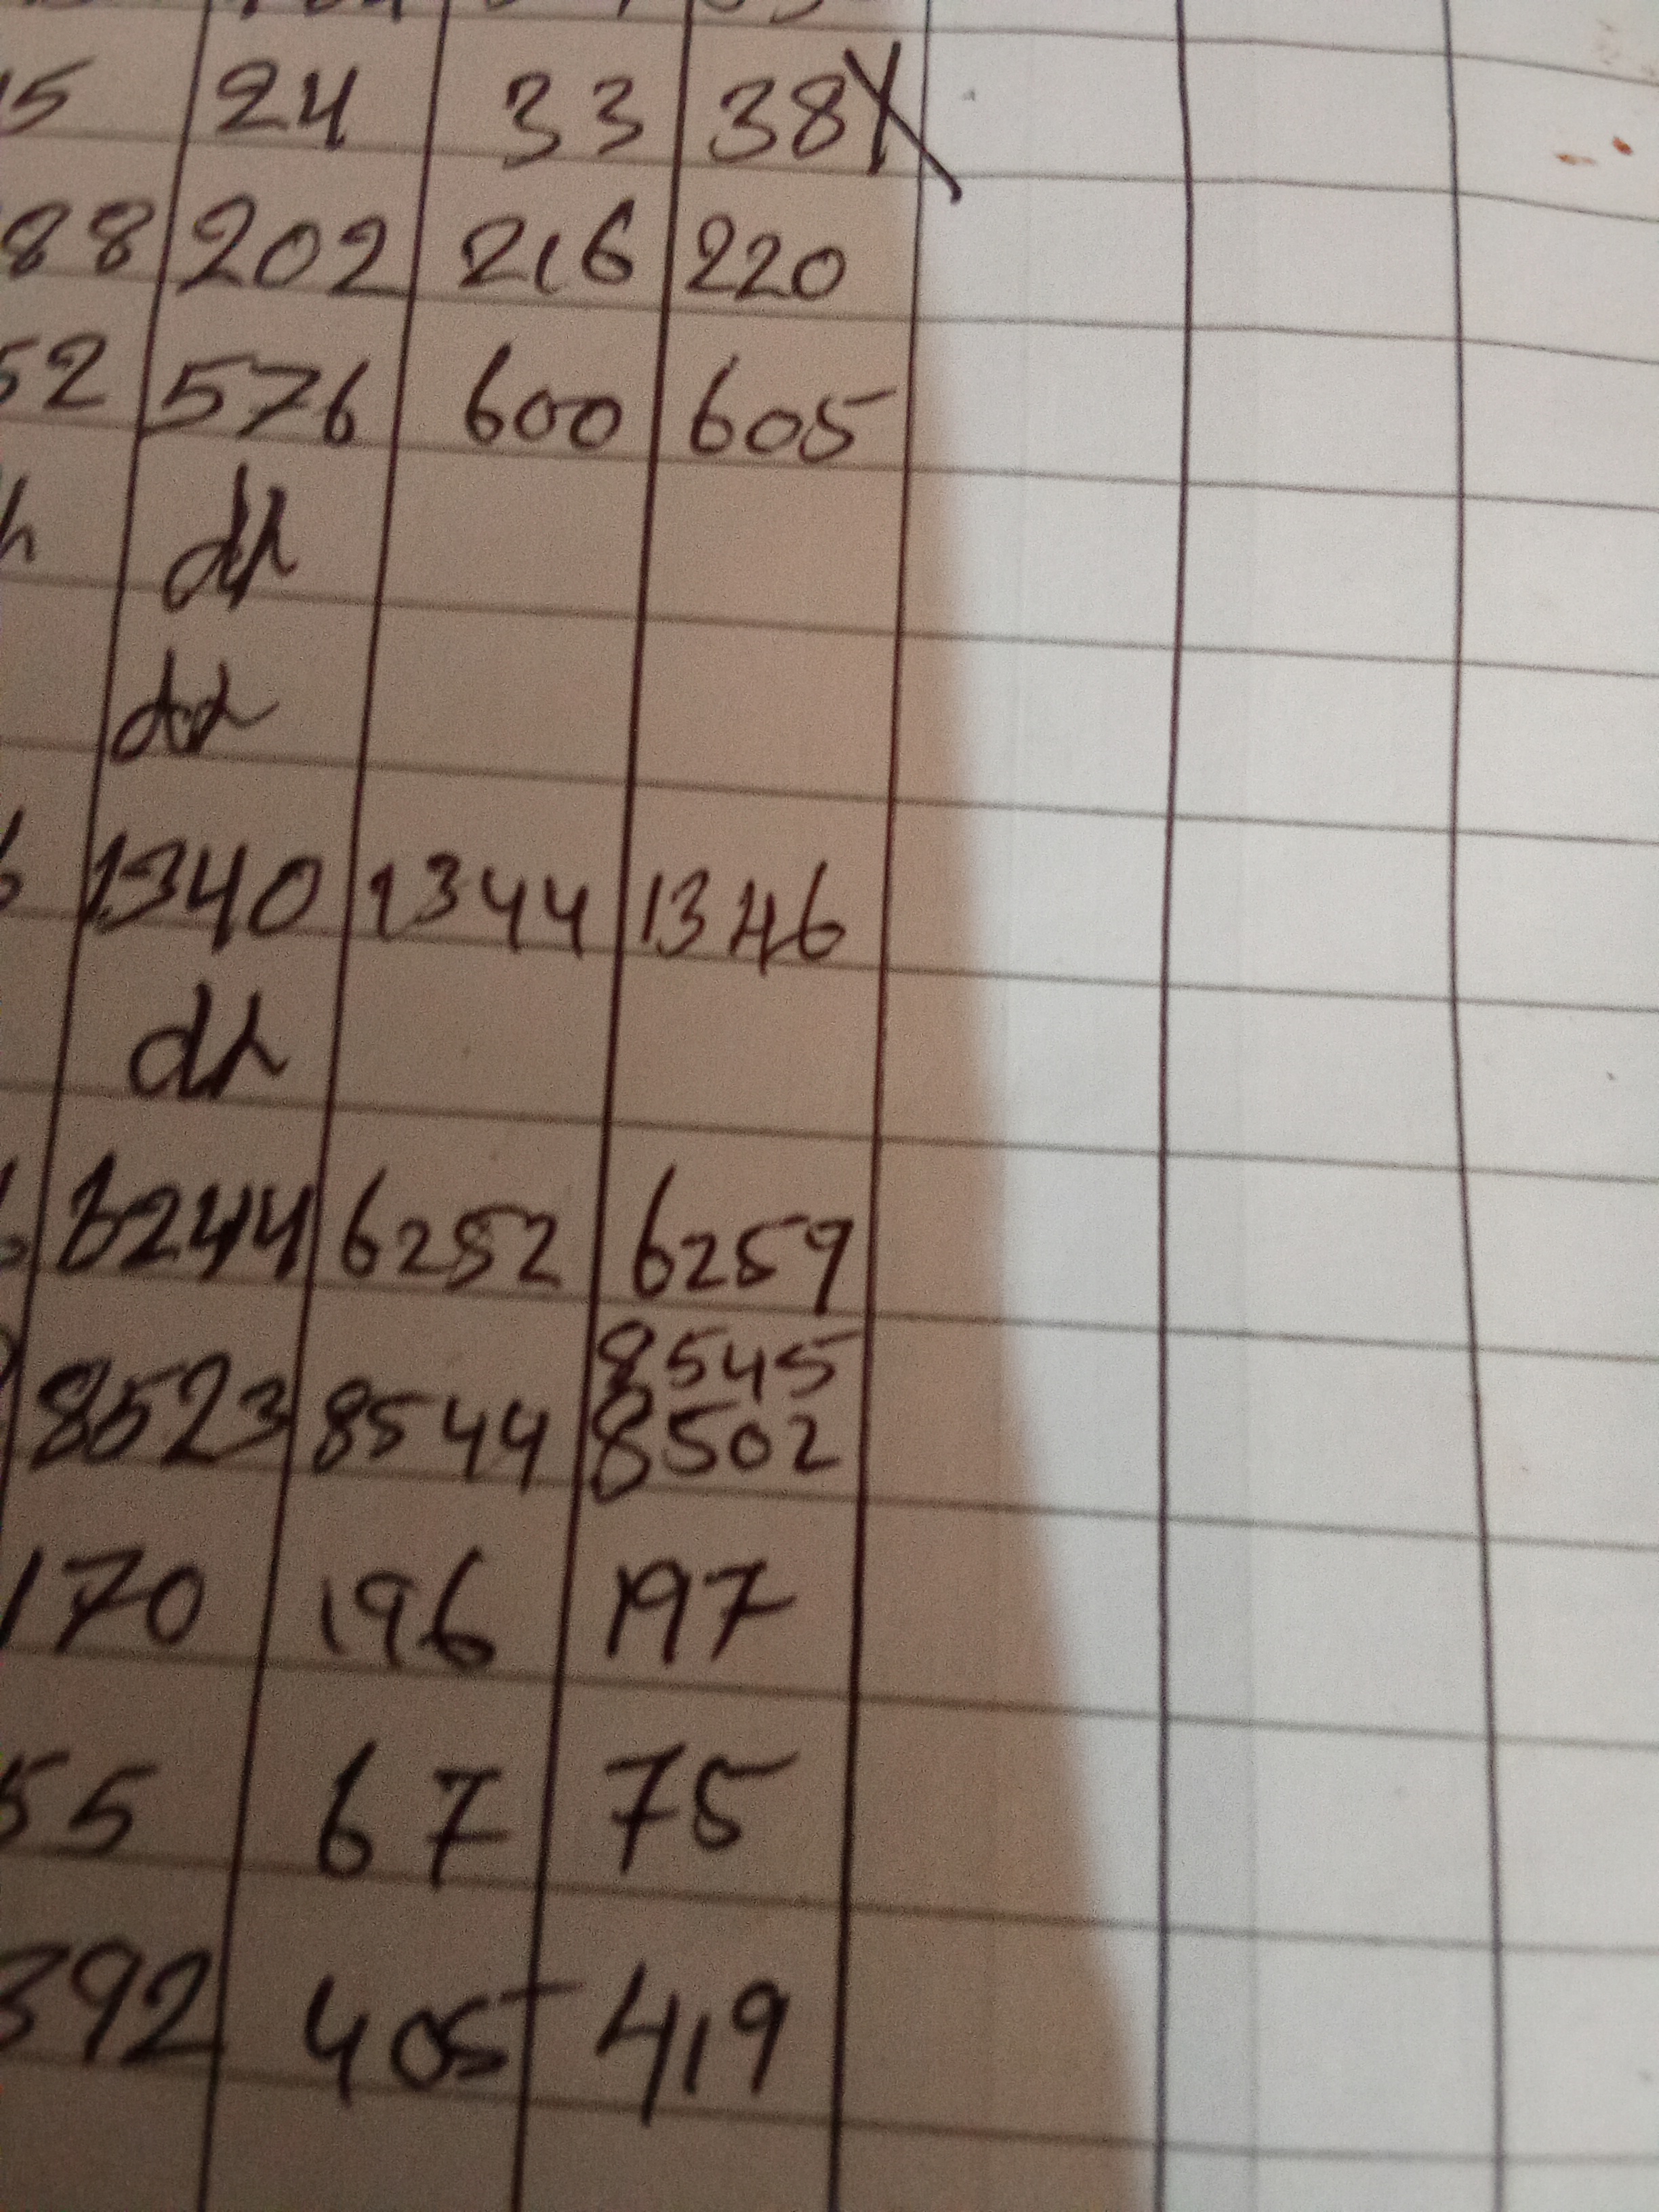 5 24 33 38
88 202 216 220
52 576 600 605
dr
1340 1344 1346
dr
6244 6252 6259
8545
8523 8544 8502
170 196 197
55 67 75
392 405 419